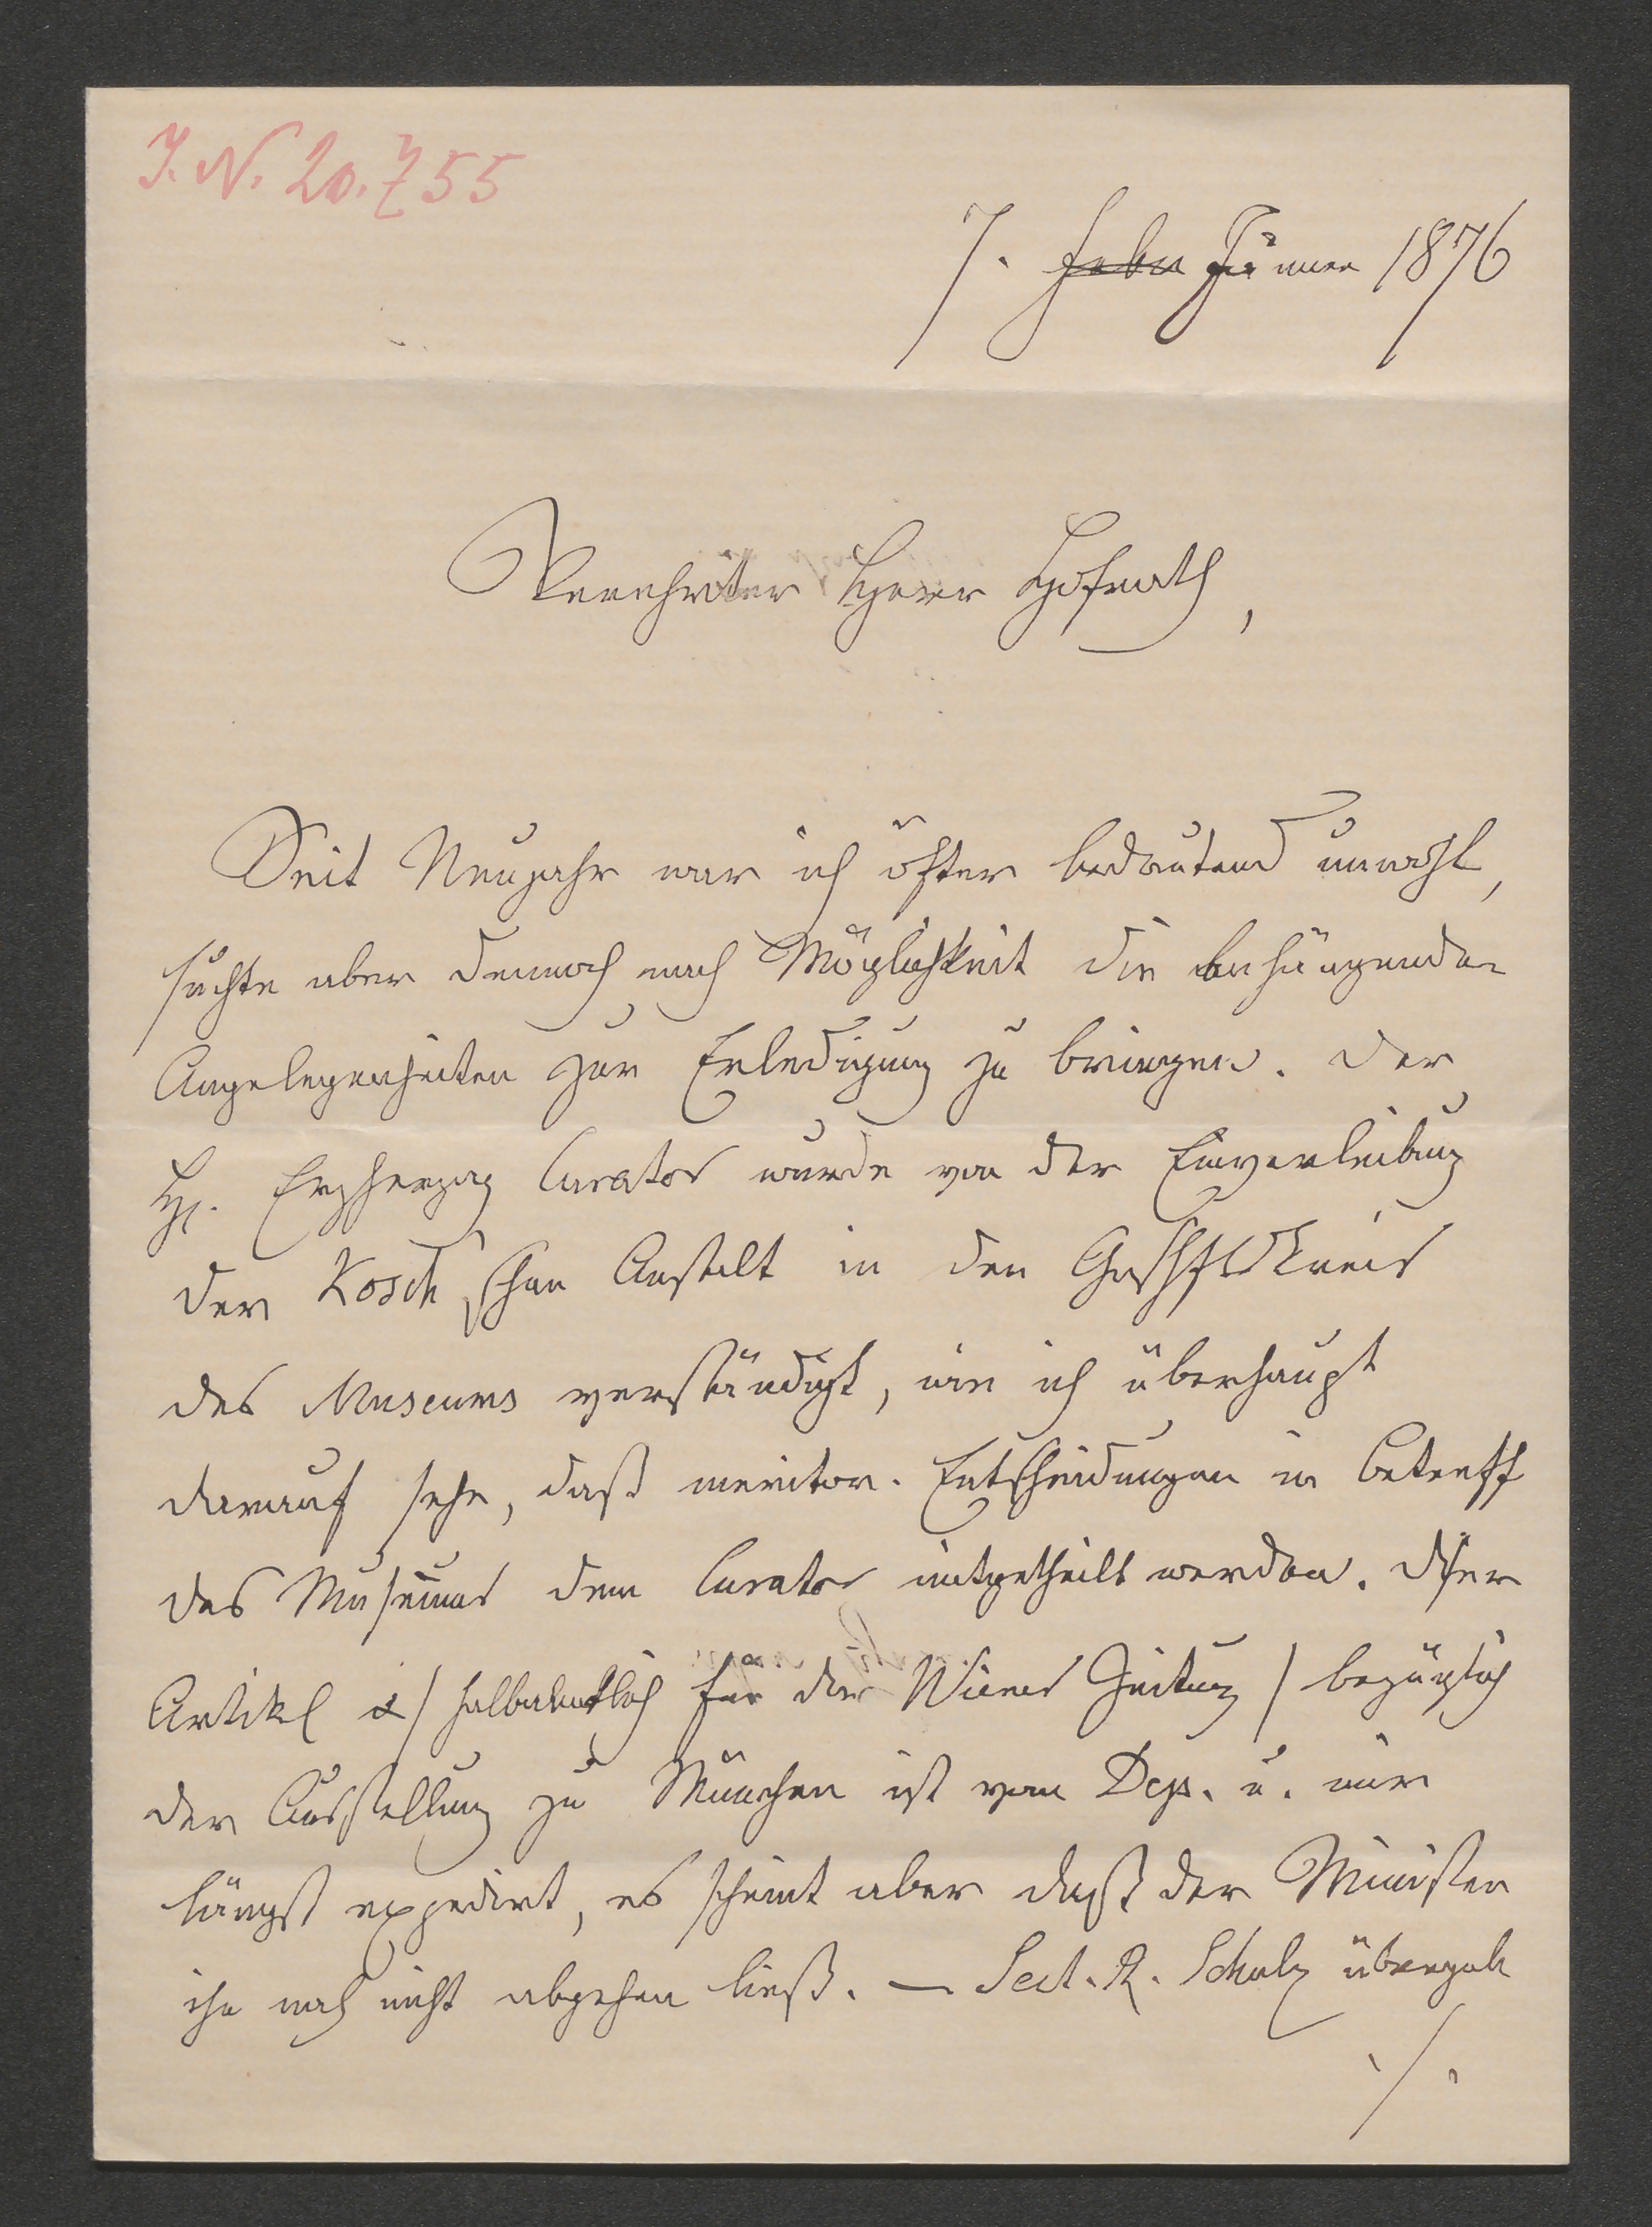 J. N. 20.755
7. Febru Jänner 1876
Verehrter Herr Hofrath,
Seit Neujahr war ich öfter bedeutend unwohl,
suchte aber dennoch nach Möglichkeit die anhängenden
Angelegenheiten zur Erledigung zu bringen. Der
H. Erzherzog Curator wurde von der Einverleibung
der Kosch'schen Anstalt in den Geschftskreis
des Museums verständigt, wie ich überhaupt
darauf sehe, daß meritor. Entscheidungen in Betreff
des Museums dem Curator mitgetheilt werden. Dser
Artikel / halbamtlich für die Wiener Zeitung / bezüglich
der Ausstellung zu München ist vom Dep. u. mir
längst expedirt, es scheint aber daß der Minister
ihn noch nicht abgehen ließ. — Sect. R. Schulz übergab
./.